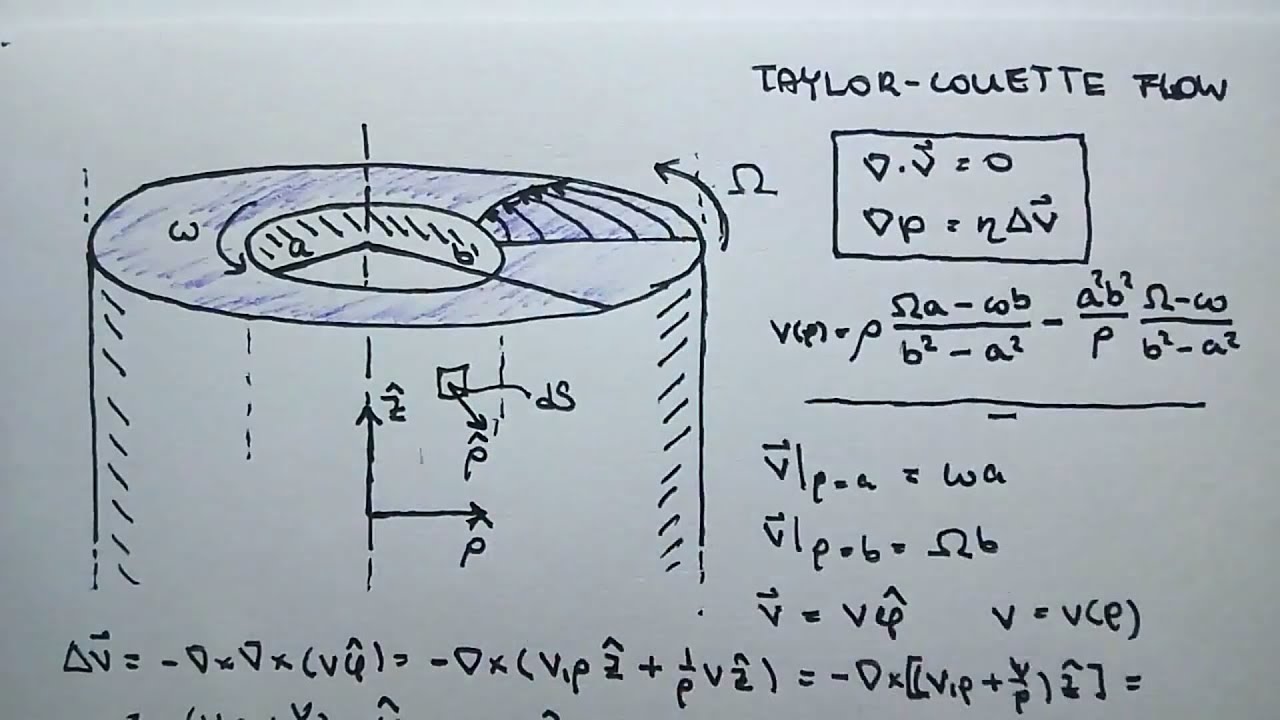 TAYLOR-COUETTE FLOW
∇·v⃗ = 0
∇p = ηΔv⃗
Ω
ω
a
b
v(ρ) = ρ (Ωa − ωb)/(b² − a²) − (a²b²)/ρ (Ω − ω)/(b² − a²)
ẑ
dS
ρ̂
ρ
v⃗|ρ=a = ωa
v⃗|ρ=b = Ωb
v⃗ = vφ̂   v = v(ρ)
Δv⃗ = −∇×∇×(vφ̂) = −∇×(v,ρ ẑ + 1/ρ v ẑ) = −∇×[(v,ρ + v/ρ)ẑ] =